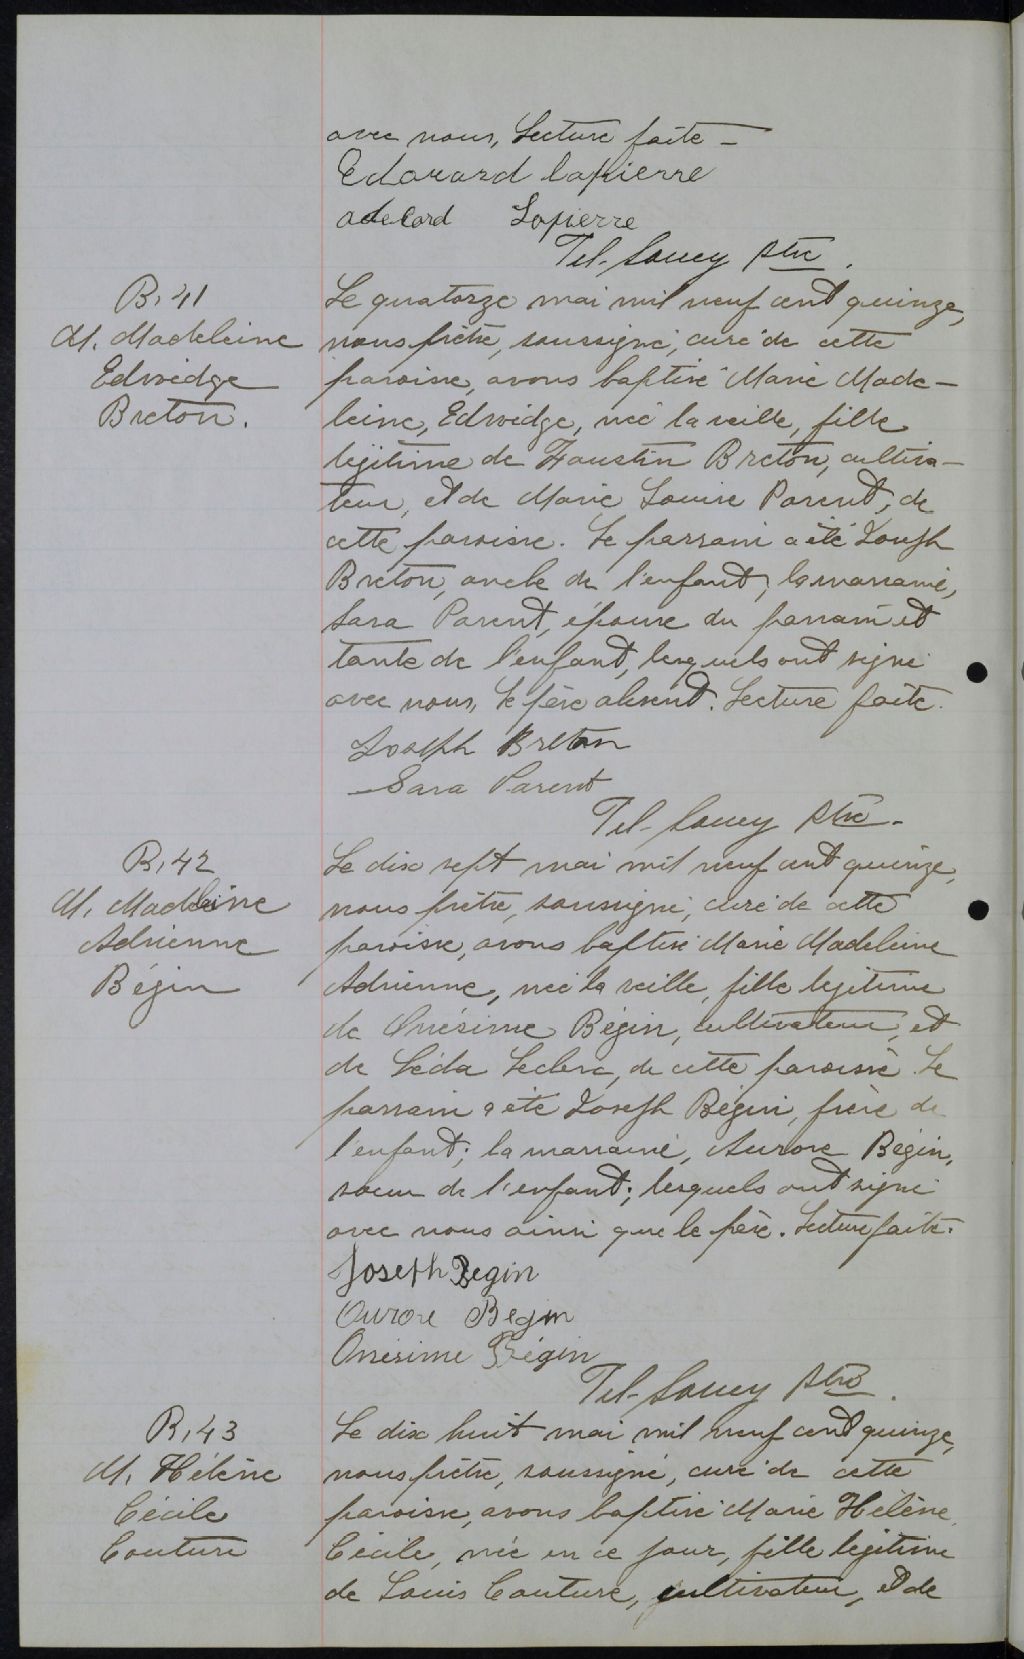 avec nous, Lecture faite —
Edouard lapierre
adelard Lapierre
Tel. Soucy ptre.
B. 41
M. Madeleine
Edwidge
Breton.
Le quatorze mai mil neuf cent quinze,
nous prêtre, soussigné, curé de cette
paroisse, avons baptisé Marie Made-
leine, Edwidge, née la veille, fille
légitime de Faustin Breton, cultiva-
teur, et de Marie Louise Parent, de
cette paroisse. Le parrain a été Joseph
Breton, oncle de l'enfant, la marraine,
Sara Parent, épouse du parrain et
tante de l'enfant, lesquels ont signé
avec nous, le père absent. Lecture faite.
Joseph Breton
Sara Parent
Tel. Soucy ptre.
B. 42
M. Madeleine
Adrienne
Bégin
Le dix sept mai mil neuf cent quinze,
nous prêtre, soussigné, curé de cette
paroisse, avons baptisé Marie Madeleine
Adrienne, née la veille, fille légitime
de Onésime Bégin, cultivateur, et
de Léda Leclerc, de cette paroisse. Le
parrain a été Joseph Bégin, frère de
l'enfant; la marraine, Aurore Bégin,
soeur de l'enfant; lesquels ont signé
avec nous ainsi que le père. Lecture faite.
Joseph Begin
Aurore Begin
Onésime Bégin
Tel. Soucy ptre.
B. 43
M. Hélène
Cécile
Couture
Le dix huit mai mil neuf cent quinze,
nous prêtre, soussigné, curé de cette
paroisse, avons baptisé Marie Hélène
Cécile, née en ce jour, fille légitime
de Louis Couture, cultivateur, et de